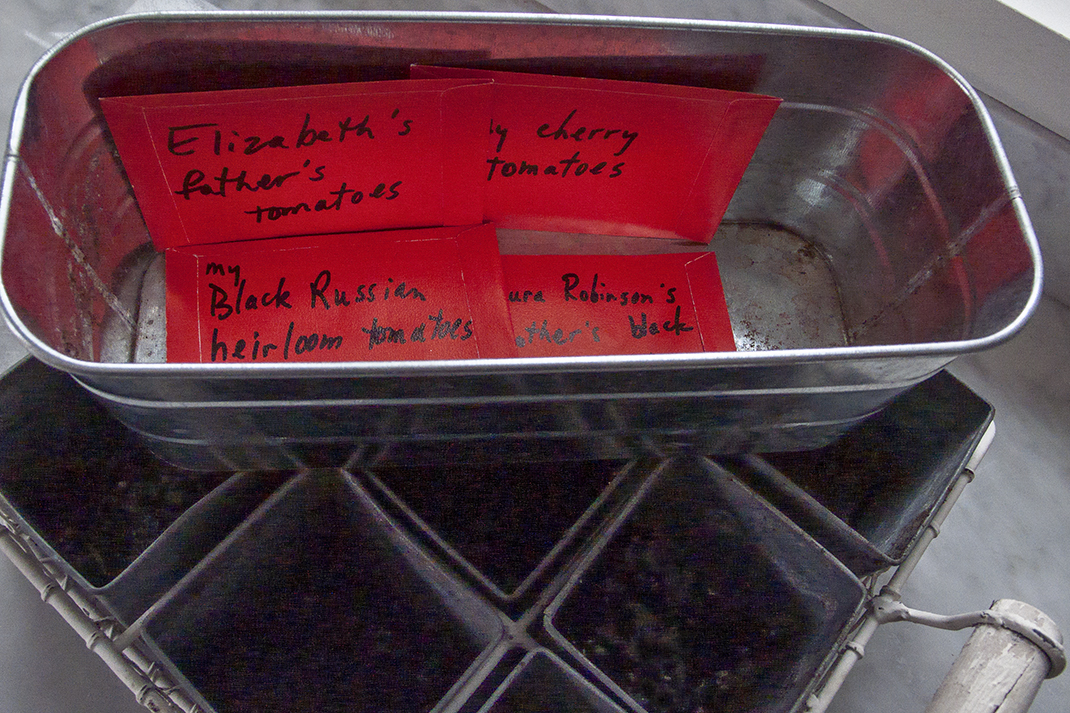 Elizabeth's
father's
tomatoes
y cherry
tomatoes
my
Black Russian
heirloom tomatoes
ura Robinson's
ather's black